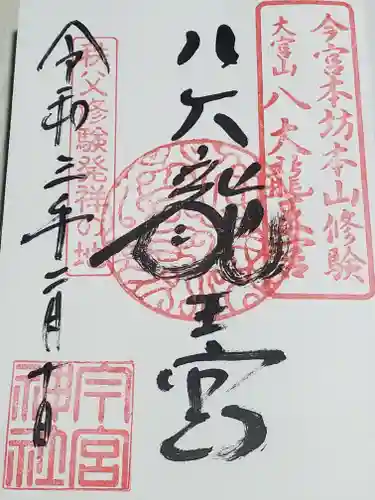 今宮本坊本山修験
大宮山
八大龍王宮
八大龍王宮
秩父修験発祥の地
令和三年二月十日
今宮神社